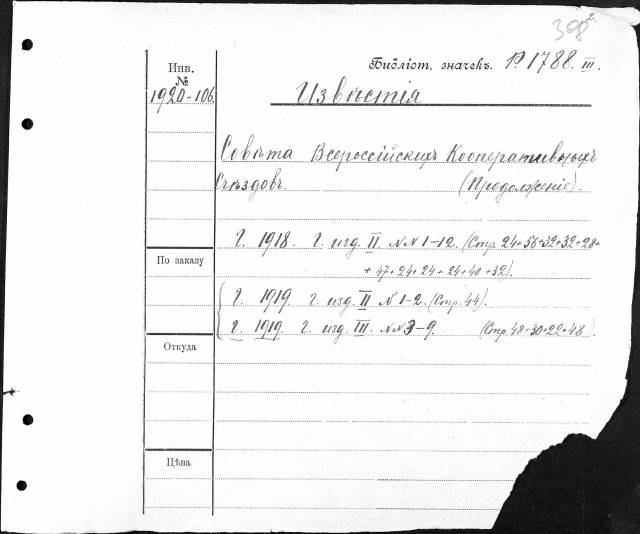 398 2.
Инв. №
Библіот. значекъ. Р. 1788. III.
1920-106.
Извѣстія
Совѣта Всероссійскихъ Кооперативныхъ
Съѣздовъ. (Продолженіе).
Г. 1918. Г. изд. II. NN 1-12. (Стр. 24+56+32+32+28+
+ 47+24+24+24+40+32).
По заказу
Г. 1919 Г. изд. II N 1-2. (Стр. 44).
Г. 1919. Г. изд. III. NN 3-9. (Стр. 48+30+22+48).
Откуда
Цѣна